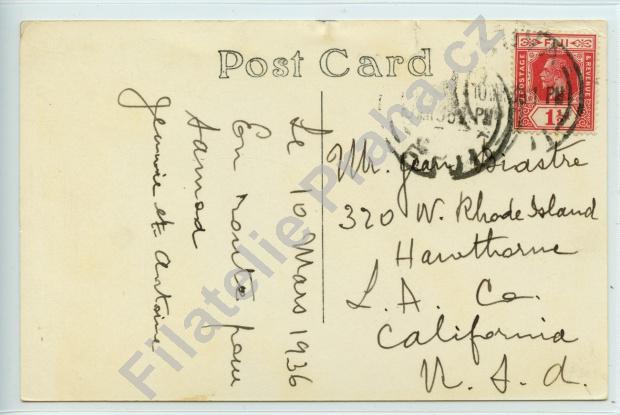 Post Card
Le 10 Mars 1936
En route pour
Samoa
Jeannie et Antoine
FIJI
POSTAGE
& REVENUE
Mr. Jean
320 W. Rhode Island
Hawthorne
L. A. Co.
California
U. S. A.
Filatelie Praha.cz